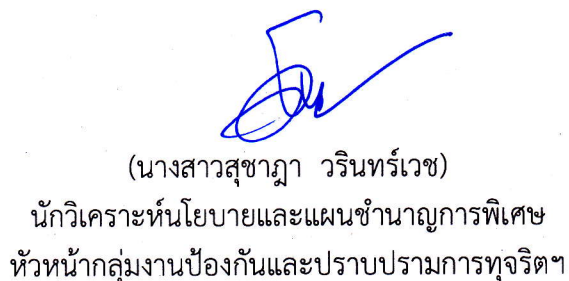 (นางสาวสุชาฎา วรินทร์เวช)
นักวิเคราะห์นโยบายและแผนชำนาญการพิเศษ
หัวหน้ากลุ่มงานป้องกันและปราบปรามการทุจริตฯ